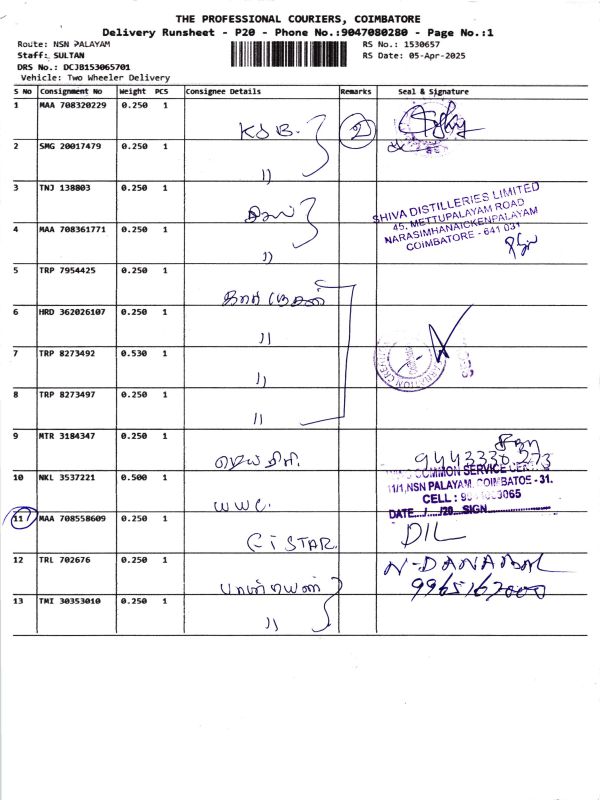 THE PROFESSIONAL COURIERS, COIMBATORE
Delivery Runsheet - P20 - Phone No.:9047080280 - Page No.:1
Route: NSN PALAYAM RS No.: 1530657
Staff: SULTAN RS Date: 05-Apr-2025
DRS No.: DCJB153065701
Vehicle: Two Wheeler Delivery
S No Consignment No Weight PCS Consignee Details Remarks Seal & Signature
1 MAA 708320229 0.250 1
KSB. 2
2 SMG 20017479 0.250 1
〃
3 TNJ 138803 0.250 1
SHIVA DISTILLERIES LIMITED
45, METTUPALAYAM ROAD
NARASIMHANAICKENPALAYAM
COIMBATORE - 641 031
4 MAA 708361771 0.250 1
〃
5 TRP 7954425 0.250 1
6 HRD 362026107 0.250 1
〃
7 TRP 8273492 0.530 1
〃
8 TRP 8273497 0.250 1
〃
9 MTR 3184347 0.250 1
9443330273
COMMON SERVICE
10 NKL 3537221 0.500 1
11/1,NSN PALAYAM, COIMBATOE - 31.
CELL :
WWC.
DATE..../..../20...SIGN
11 MAA 708558609 0.250 1
DIL
STAR.
12 TRL 702676 0.250 1
N-DANABAL
9965167000
13 TMI 30353010 0.250 1
〃